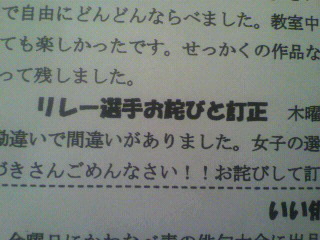 で自由にどんどんならべました。教室中
ても楽しかったです。せっかくの作品な
って残しました。
リレー選手お詫びと訂正 木曜
勘違いで間違いがありました。女子の選
づきさんごめんなさい！！お詫びして訂
いい俳